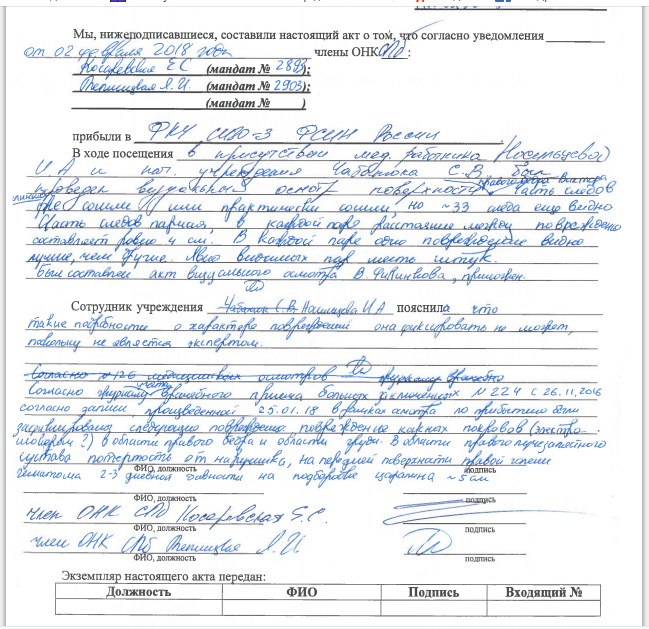 Мы, нижеподписавшиеся, составили настоящий акт о том, что согласно уведомления
от 02 февраля 2018 года члены ОНК СПб:
Косаревская ЕС (мандат № 2893);
Теплицкая Я.И. (мандат № 2903);
(мандат № )
прибыли в ФКУ СИЗО-3 ФСИН России
В ходе посещения в присутствии мед. работника
И.А и нач. учреждения С.В. был
проведен визуальный осмотр поверхности правого бедра Виктора. Часть следов
уже сошли или практически сошли, но ~33 следа ещё видно
Часть следов парная, в каждой паре расстояние между повреждено
составляет ровно 4 см. В каждой паре одно повреждение видно
лучше, чем другие. Явно видимых пар шесть штук.
Был составлен акт визуального осмотра В. Филинкова, приложен.
Сотрудник учреждения И А пояснила что
такие подробности о характере повреждений она фиксировать не может,
поскольку не является экспертом.
Согласно медицинских осмотров журналу врачебно
Согласно журналу учёта врачебного приема больных заключенных № 224 с 26.11.2016
согласно записи произведенной 25.01.18 в рамках осмотра по прибытию были
зафиксированы следующие повреждения повреждение кожных покровов (электро
шокером?) в области правого бедра и области груди. В области правого лучезапястного
сустава потертость от наручника, на передней поверхности правой голени
ФИО, должность
гематома 2-3 дневной давности на подбородке царапина ~5 см
подпись
ФИО, должность подпись
член ОНК СПб Косаревская Е.С.
ФИО, должность подпись
член ОНК СПб Теплицкая Я.И.
ФИО, должность подпись
Экземпляр настоящего акта передан:
Должность ФИО Подпись Входящий №